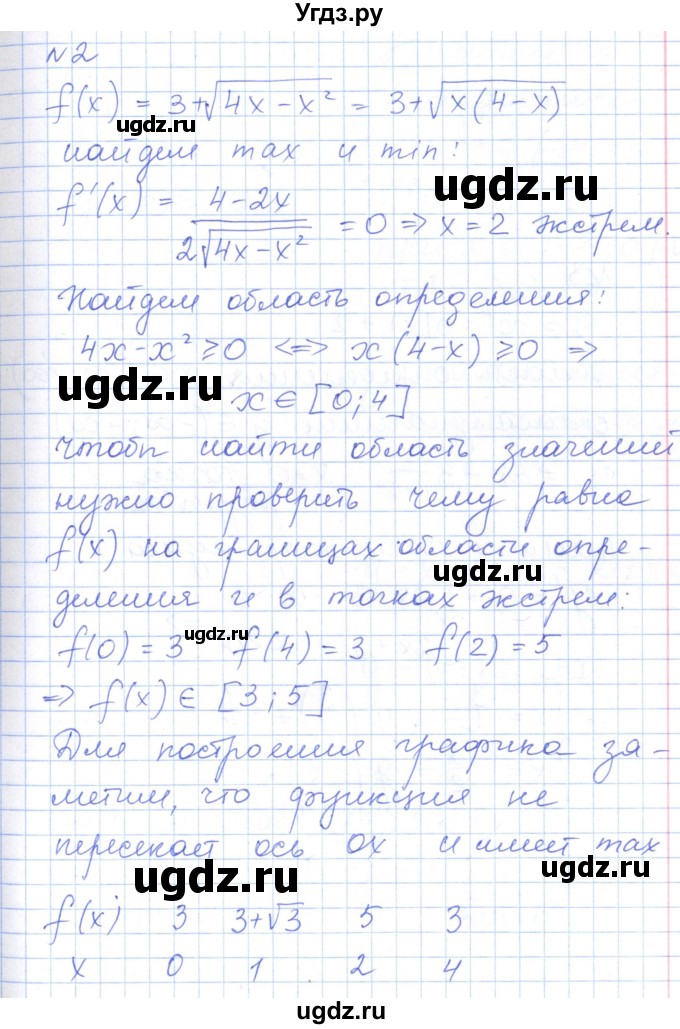 Угдз.ру
№2
f(x) = 3+√(4x-x²) = 3+√(x(4-x))
ugdz.ru
найдем max и min:
ugdz.ru
f'(x) = (4-2x)/(2√(4x-x²)) = 0 => x=2 экстрем.
ugdz.ru
Найдем область определения:
4x-x² ≥ 0 <=> x(4-x) ≥ 0 =>
ugdz.ru
ugdz.ru
x ∈ [0; 4]
чтобы найти область значений
нужно проверить чему равна
f(x) на границах области опре-
ugdz.ru
деления и в точках экстрем:
ugdz.ru
f(0) = 3 f(4) = 3 f(2) = 5
=> f(x) ∈ [3; 5]
Для построения графика за-
метим, что функция не
пересекает ось OX и имеет max
ugdz.ru
ugdz.ru
f(x) 3 3+√3 5 3
x 0 1 2 4
ugdz.ru